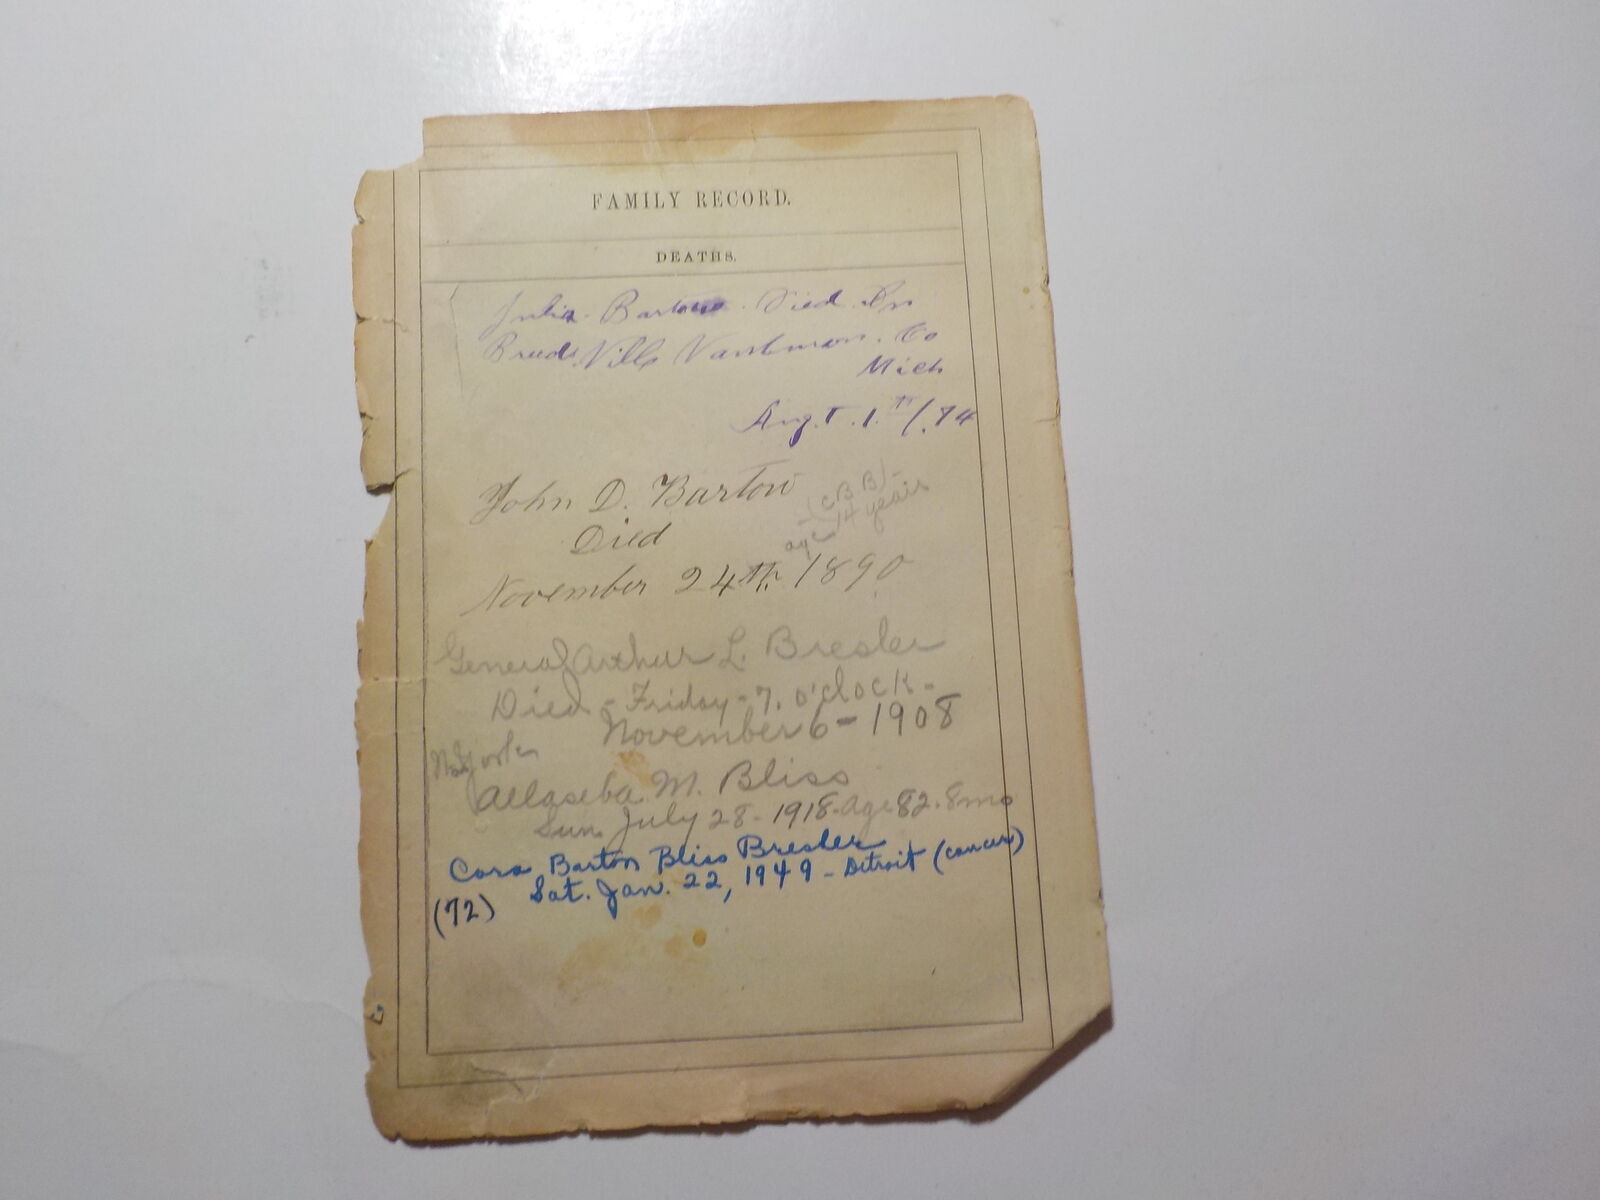 FAMILY RECORD.
DEATHS.
Julia Bartow Died In
Breeds Ville Vanburen. Co
Mich
Aug.t. 1.th /.74
John D. Bartow
(C B B)-
Died
age 14 years
November 24th. 1890
General Arthur L. Bresler
Died - Friday - 7. o'clock -
November 6 - 1908
N. York
M. Bliss
Sun July 28 - 1918 - Age 82. 8 mo
Cora Barton Bliss Bresler
Sat. Jan. 22, 1949 - Detroit (cancer)
(72)